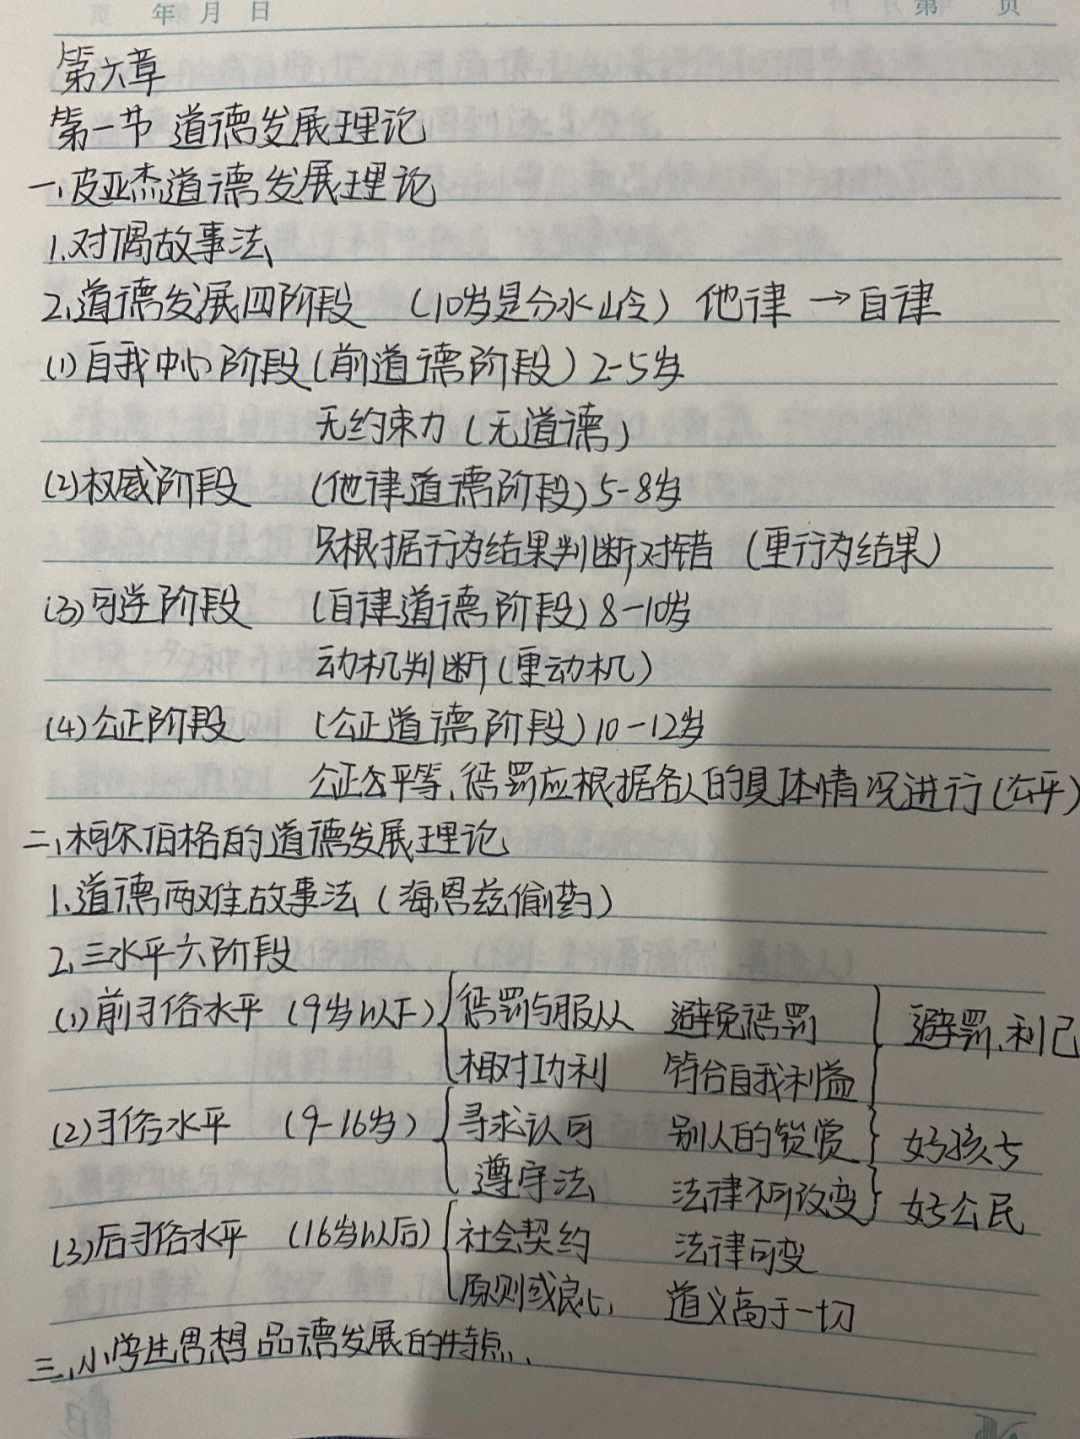 年 月 日 第 页
第六章
第一节 道德发展理论
一、皮亚杰道德发展理论
1.对偶故事法
2.道德发展四阶段 (10岁是分水岭) 他律 →自律
(1)自我中心阶段(前道德阶段) 2-5岁
无约束力(无道德)
(2)权威阶段 (他律道德阶段)5-8岁
只根据行为结果判断对错 (重行为结果)
(3)可逆阶段 (自律道德阶段)8-10岁
动机判断(重动机)
(4)公正阶段 (公正道德阶段)10-12岁
公正公平等,惩罚应根据各人的具体情况进行(公平)
二、柯尔伯格的道德发展理论
1.道德两难故事法(海恩兹偷药)
2.三水平六阶段
(1)前习俗水平 (9岁以下) 惩罚与服从 避免惩罚 避罚、利己
相对功利 符合自我利益
(2)习俗水平 (9-16岁) 寻求认可 别人的赞赏 好孩子
遵守法 法律不可改变 好公民
(3)后习俗水平 (16岁以后) 社会契约 法律可变
原则或良心 道义高于一切
三、小学生思想品德发展的特点